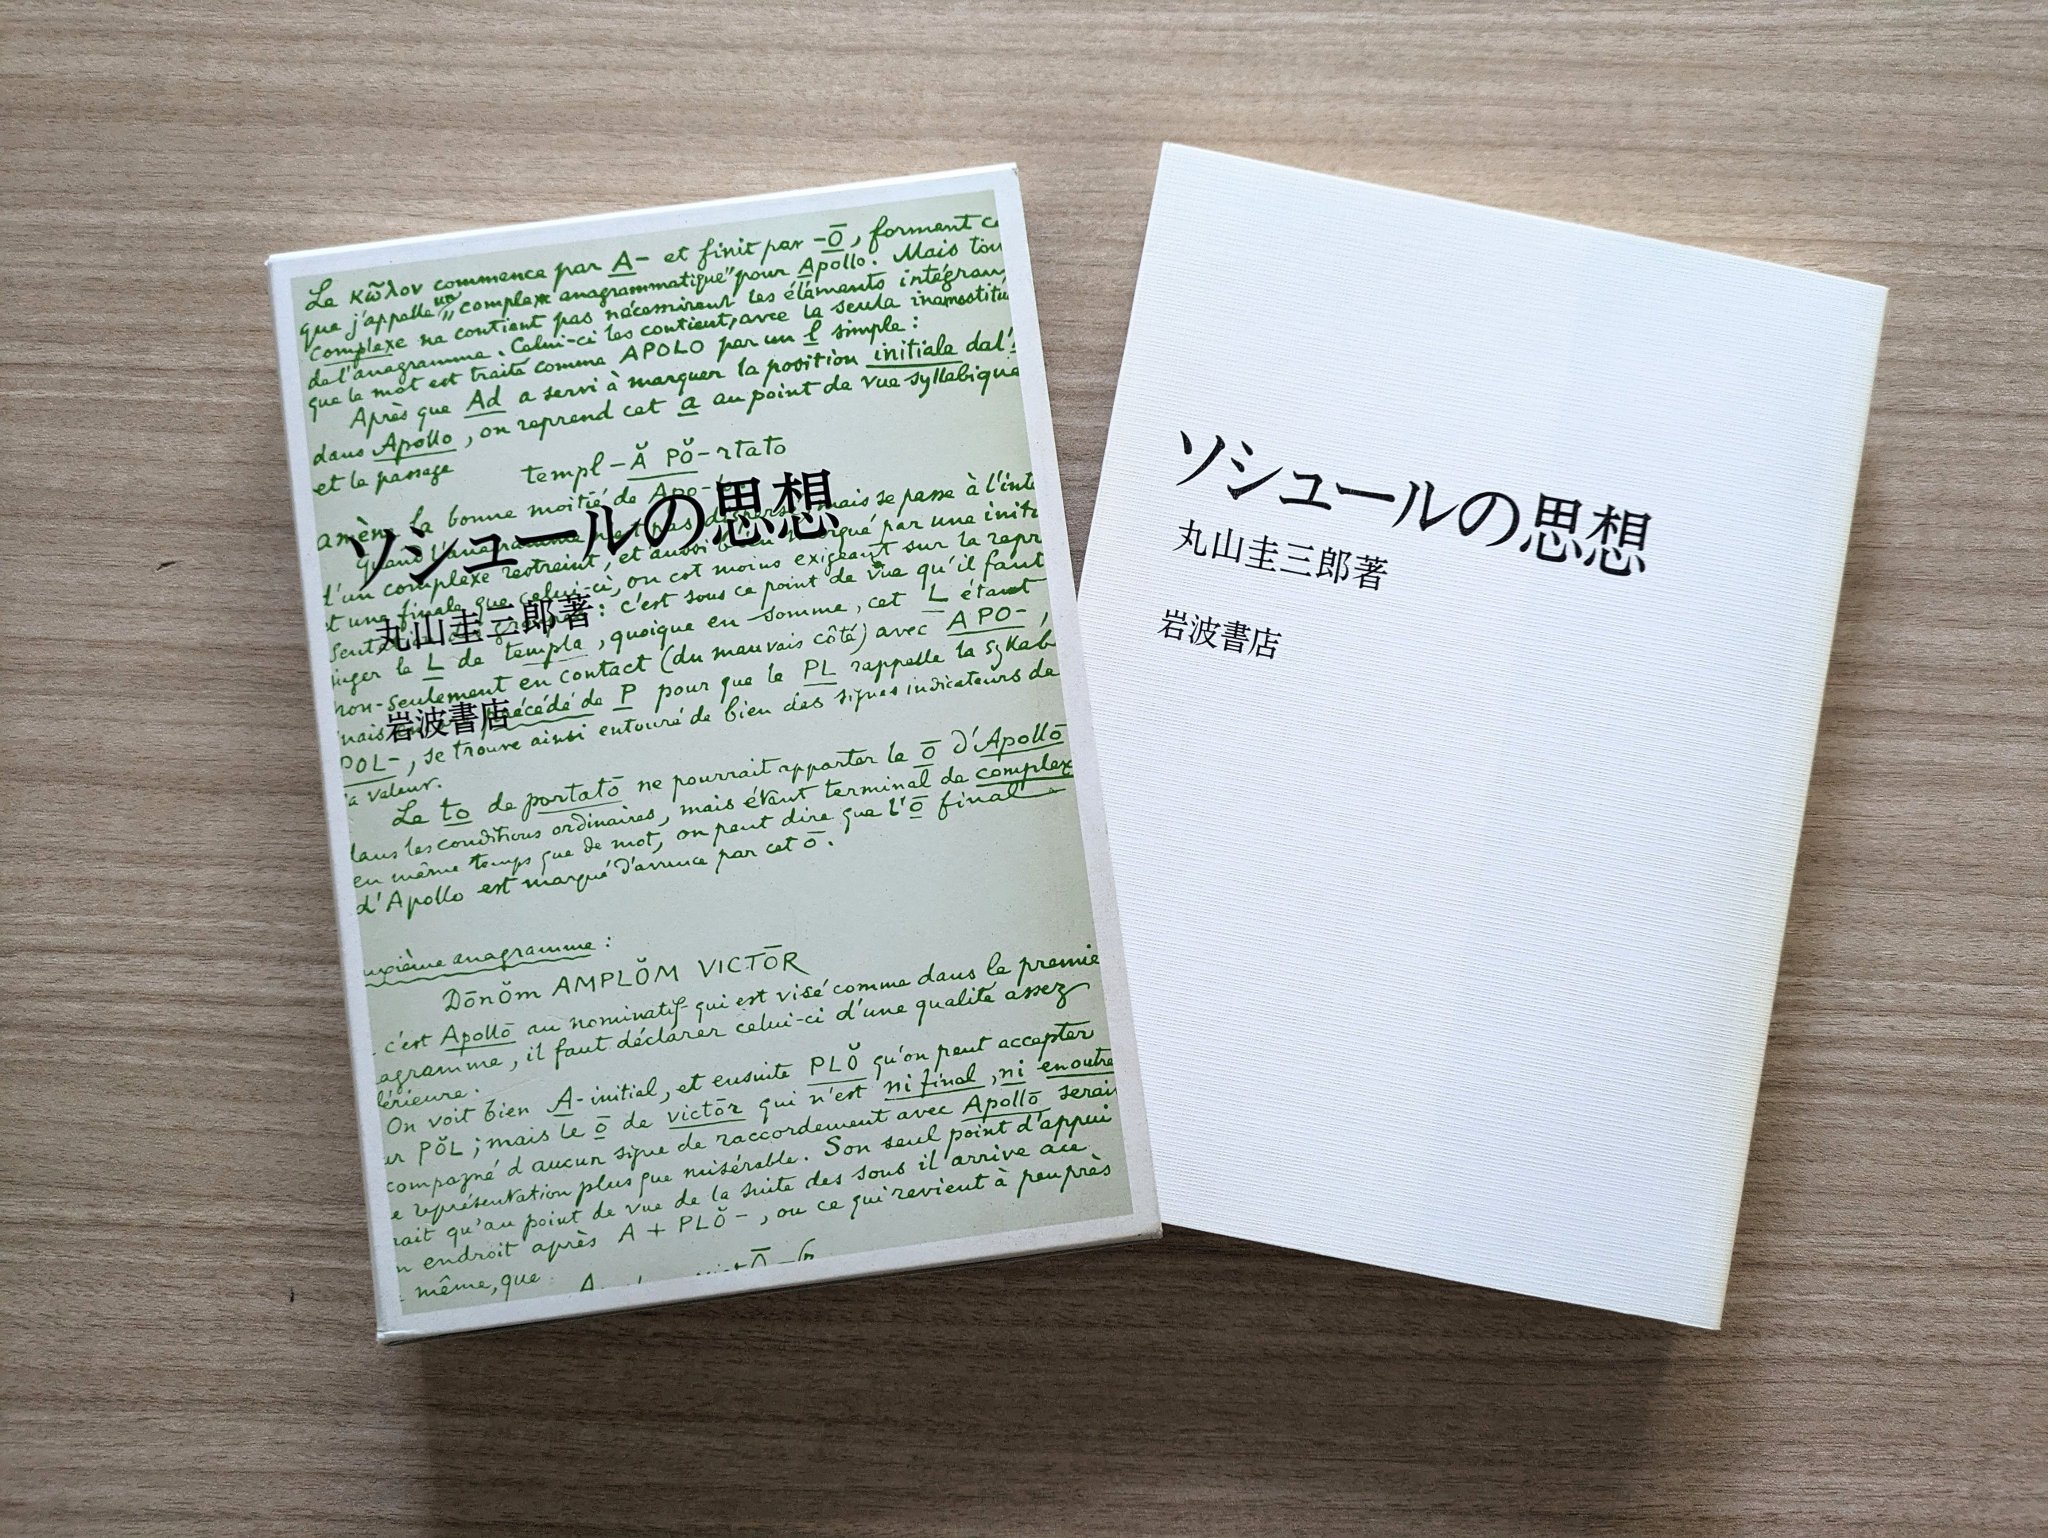 Le κῶλον commence par A- et finit par -Ō, forment ce
que j'appelle un "complexe anagrammatique" pour Apollo. Mais tou
complexe ne contient pas nécessairement les éléments intégran
de l'anagramme. Celui-ci les contient, avec la seule
que le mot est traité comme APOLO par un l simple :
Après que Ad a servi à marquer la position initiale de l'
dans Apollo, on reprend cet a au point de vue syllabique
et le passage
templ-Ă PŎ-rtato
amène la bonne moitié de Apo-
ソシュールの思想
l'un complexe restreint, et aussi bien marqué par une initi
et une finale que celui-ci, on est moins exigeant sur la repr
丸山圭三郎著
: c'est sous ce point de vue qu'il faut
juger le L de templa, quoique en somme, cet L étant
non-seulement en contact (du mauvais côté) avec APO-,
mais précédé de P pour que le PL rappelle la syllab
岩波書店
POL-, se trouve ainsi entouré de bien des signes indicateurs de
sa valeur.
Le to de portatō ne pourrait apporter le ō d'Apollō
dans les conditions ordinaires, mais étant terminal de complexe
en même temps que de mot, on peut dire que l'ō final
d'Apollo est marqué d'avance par cet ō.
uxième anagramme :
Dōnŏm AMPLŎM VICTŌR
c'est Apollō au nominatif qui est visé comme dans le premie
agramme, il faut déclarer celui-ci d'une qualité assez
férieure.
On voit bien A-initial, et ensuite PLŎ qu'on peut accepter
ur PŎL ; mais le ō de victōr qui n'est ni final, ni en outre
compagné d'aucun signe de raccordement avec Apollō serai
e représentation plus que misérable. Son seul point d'appui
rait qu'au point de vue de la suite des sons il arrive au
n endroit après A + PLŎ-, ou ce qui revient à peu près
même, que
ソシュールの思想
丸山圭三郎著
岩波書店